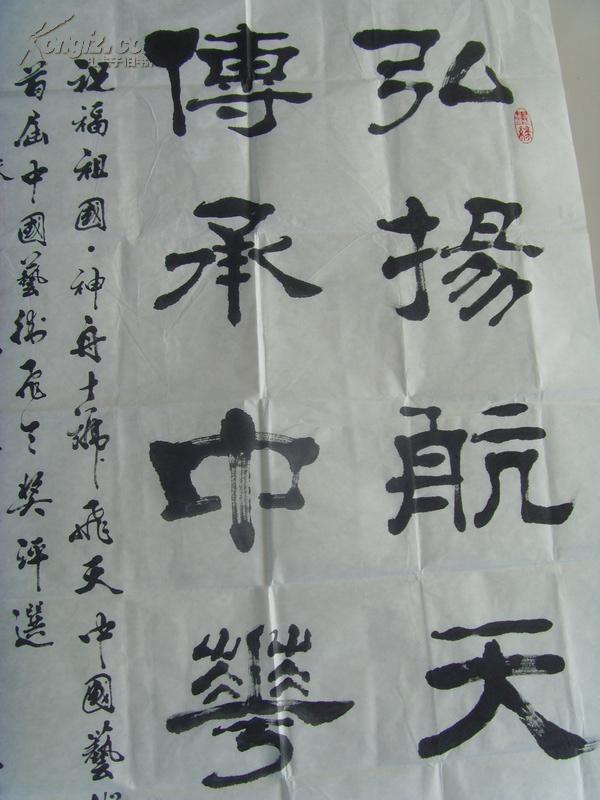 弘揚航天
傳承中華
祝福祖國·神舟十號飛天中國藝
首屆中國藝術飛天獎評選